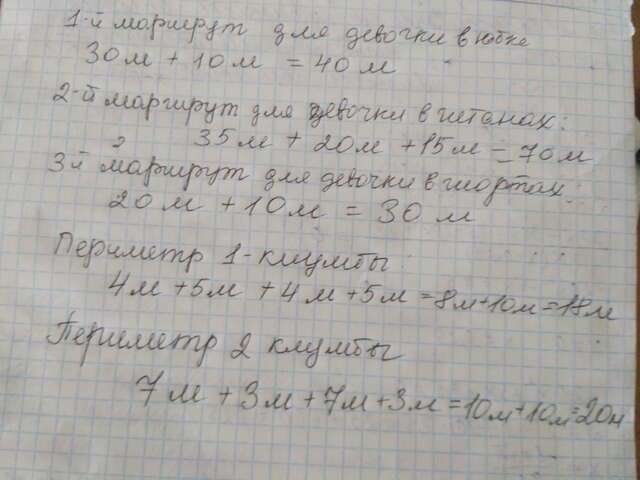 1-й маршрут для девочки в юбке
30м + 10м = 40м
2-й маршрут для девочки в штанах:
35м + 20м + 15м = 70м
3й маршрут для девочки в шортах:
20м + 10м = 30м
Периметр 1-клумбы:
4м + 5м + 4м + 5м = 8м + 10м = 18м
Периметр 2 клумбы
7м + 3м + 7м + 3м = 10м + 10м = 20м